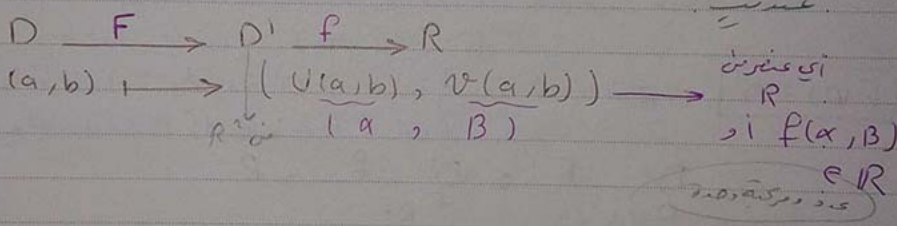 D F→ D' f→ R
(a,b) ⟼ (U(a,b), V(a,b)) ⟶ أي عنصر من
R² من (α, β) R
أو f(α,β)
∈ R